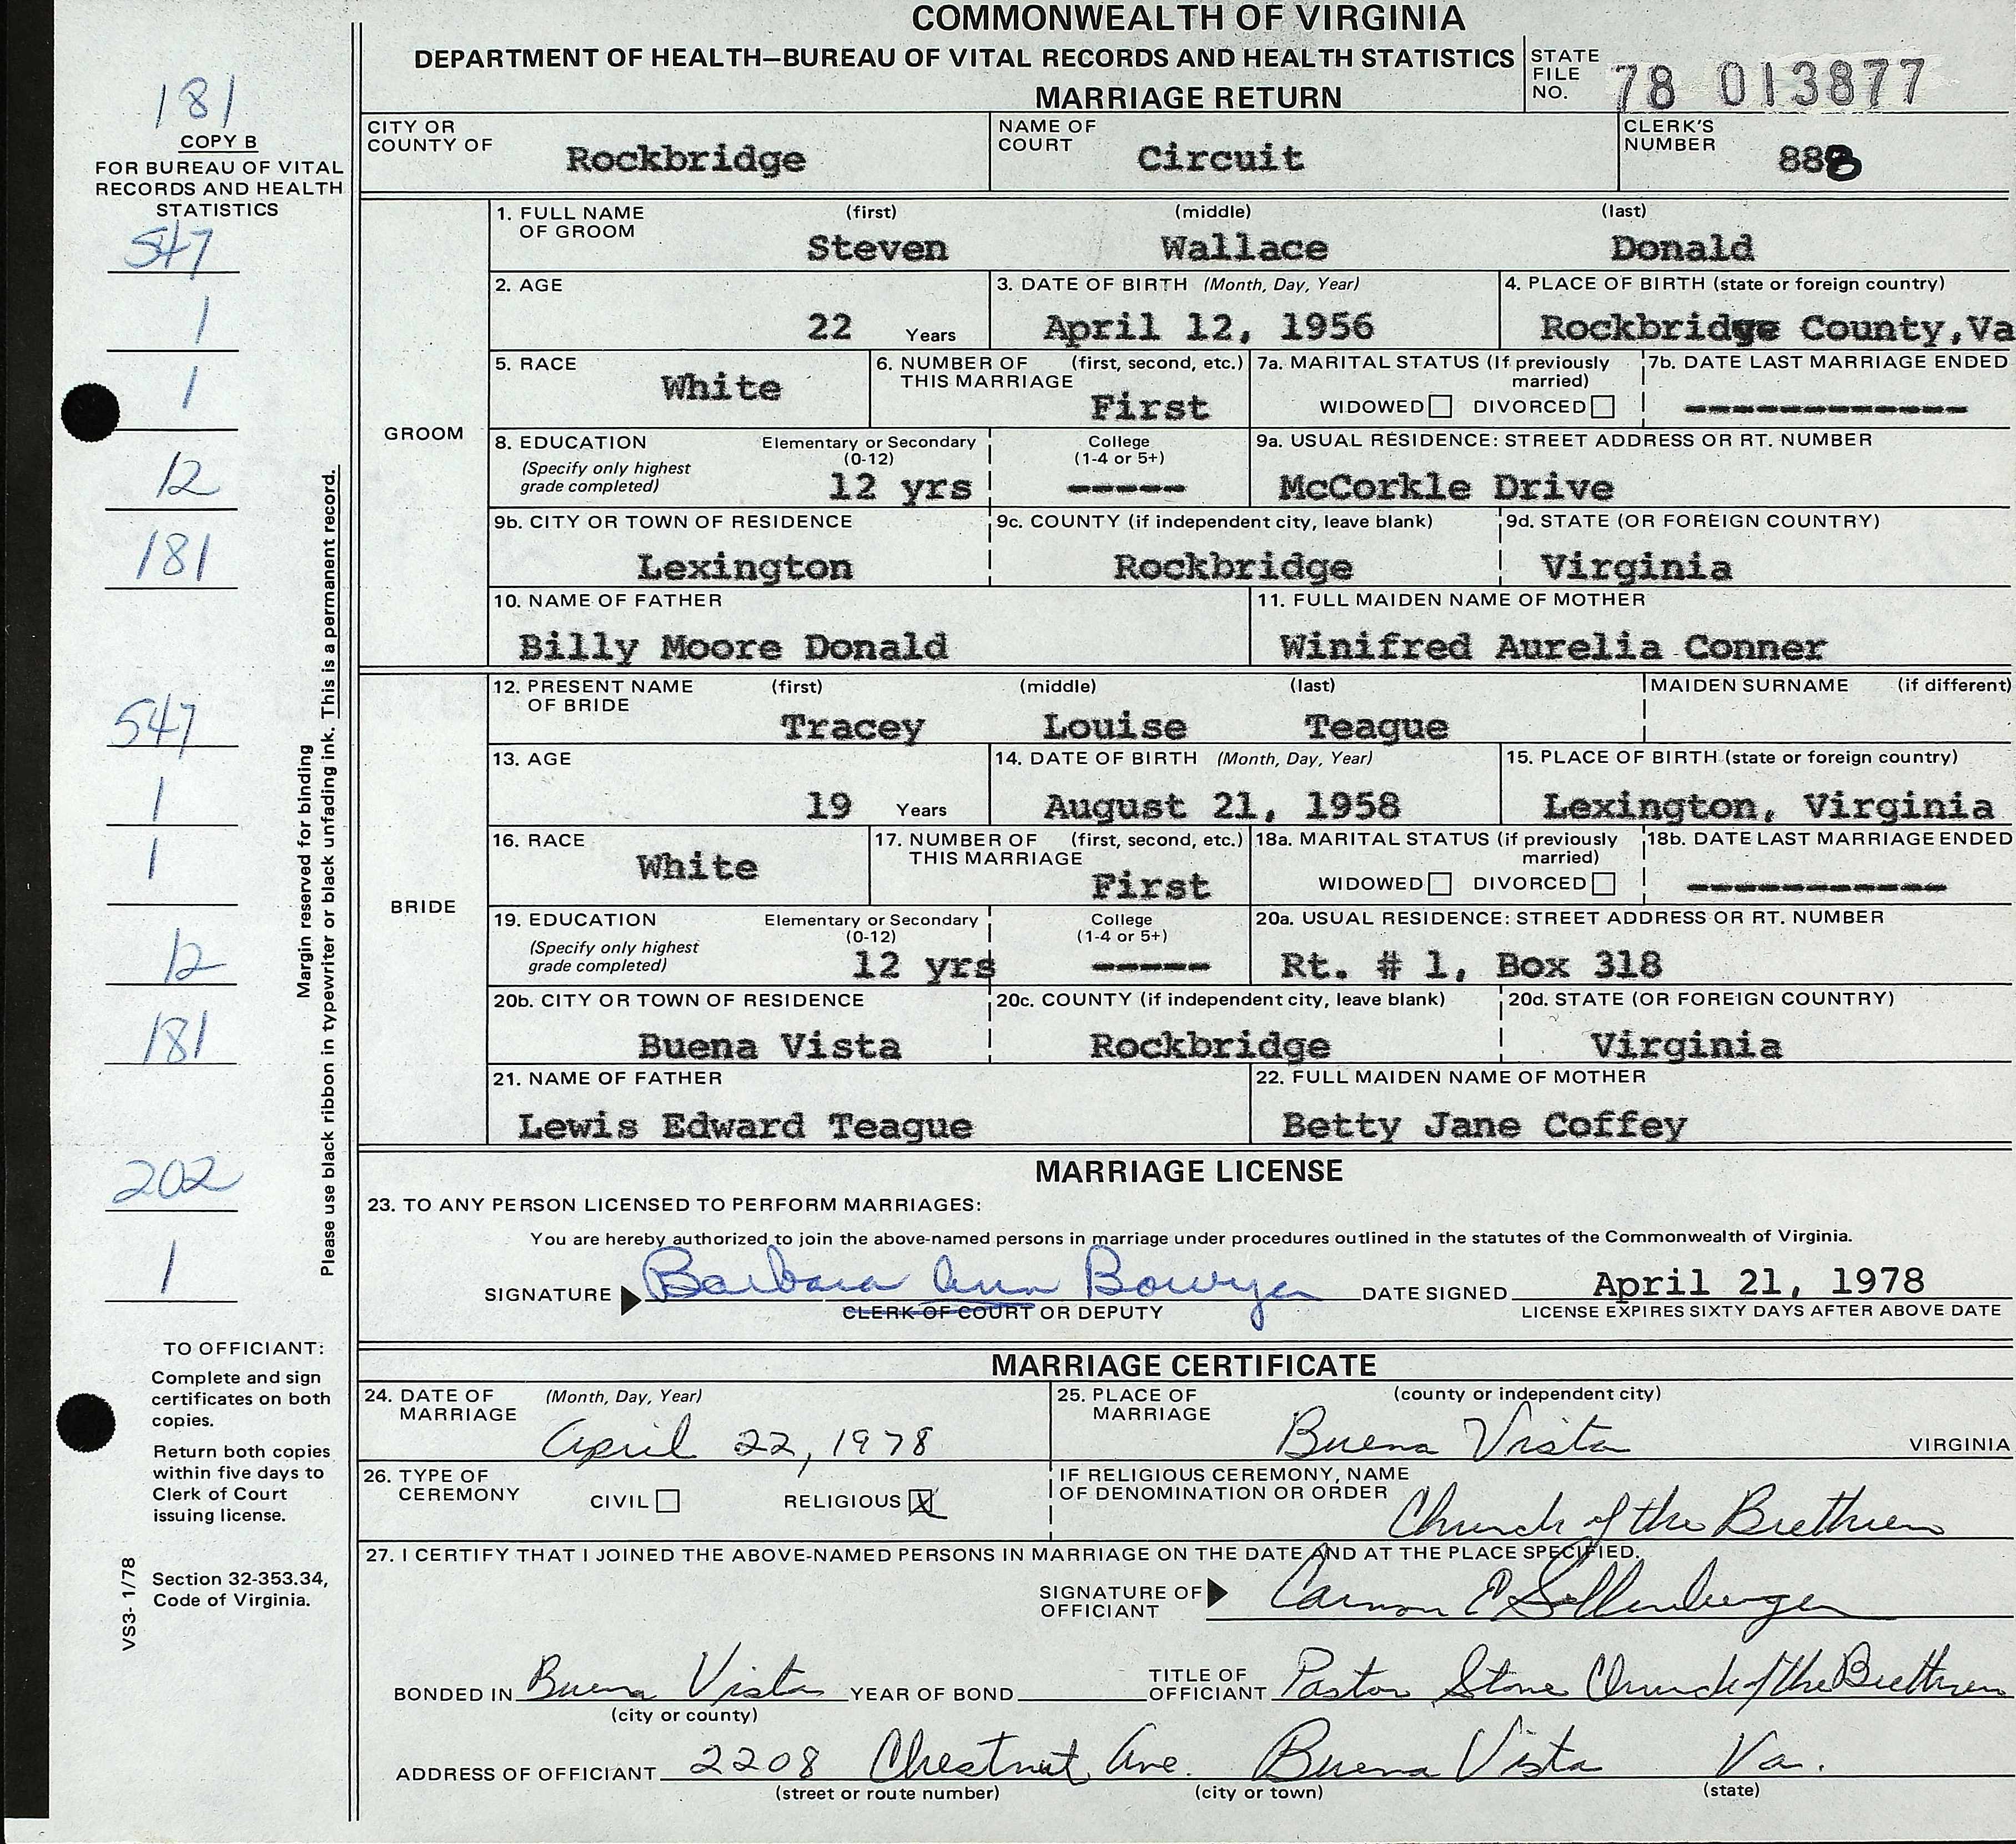 COMMONWEALTH OF VIRGINIA
DEPARTMENT OF HEALTH—BUREAU OF VITAL RECORDS AND HEALTH STATISTICS
MARRIAGE RETURN
STATE FILE NO. 78 013877
181
COPY B
FOR BUREAU OF VITAL
RECORDS AND HEALTH
STATISTICS
547
1
1
12
181
547
1
1
12
181
202
1
Margin reserved for binding
Please use black ribbon in typewriter or black unfading ink. This is a permanent record.
TO OFFICIANT:
Complete and sign
certificates on both
copies.
Return both copies
within five days to
Clerk of Court
issuing license.
Section 32-353.34,
Code of Virginia.
VS3- 1/78
CITY OR COUNTY OF Rockbridge
NAME OF COURT Circuit
CLERK'S NUMBER 888
GROOM
1. FULL NAME OF GROOM (first) (middle) (last)
Steven Wallace Donald
2. AGE 22 Years
3. DATE OF BIRTH (Month, Day, Year)
April 12, 1956
4. PLACE OF BIRTH (state or foreign country)
Rockbridge County,Va
5. RACE White
6. NUMBER OF THIS MARRIAGE (first, second, etc.)
First
7a. MARITAL STATUS (If previously married)
WIDOWED DIVORCED
7b. DATE LAST MARRIAGE ENDED
------------
8. EDUCATION (Specify only highest grade completed)
Elementary or Secondary (0-12)
12 yrs
College (1-4 or 5+)
-----
9a. USUAL RESIDENCE: STREET ADDRESS OR RT. NUMBER
McCorkle Drive
9b. CITY OR TOWN OF RESIDENCE
Lexington
9c. COUNTY (if independent city, leave blank)
Rockbridge
9d. STATE (OR FOREIGN COUNTRY)
Virginia
10. NAME OF FATHER
Billy Moore Donald
11. FULL MAIDEN NAME OF MOTHER
Winifred Aurelia Conner
BRIDE
12. PRESENT NAME OF BRIDE (first) (middle) (last)
Tracey Louise Teague
MAIDEN SURNAME (if different)
13. AGE 19 Years
14. DATE OF BIRTH (Month, Day, Year)
August 21, 1958
15. PLACE OF BIRTH (state or foreign country)
Lexington, Virginia
16. RACE White
17. NUMBER OF THIS MARRIAGE (first, second, etc.)
First
18a. MARITAL STATUS (if previously married)
WIDOWED DIVORCED
18b. DATE LAST MARRIAGE ENDED
-----------
19. EDUCATION (Specify only highest grade completed)
Elementary or Secondary (0-12)
12 yrs
College (1-4 or 5+)
-----
20a. USUAL RESIDENCE: STREET ADDRESS OR RT. NUMBER
Rt. # 1, Box 318
20b. CITY OR TOWN OF RESIDENCE
Buena Vista
20c. COUNTY (if independent city, leave blank)
Rockbridge
20d. STATE (OR FOREIGN COUNTRY)
Virginia
21. NAME OF FATHER
Lewis Edward Teague
22. FULL MAIDEN NAME OF MOTHER
Betty Jane Coffey
MARRIAGE LICENSE
23. TO ANY PERSON LICENSED TO PERFORM MARRIAGES:
You are hereby authorized to join the above-named persons in marriage under procedures outlined in the statutes of the Commonwealth of Virginia.
SIGNATURE Barbara Ann Bowyer DATE SIGNED April 21, 1978
CLERK OF COURT OR DEPUTY LICENSE EXPIRES SIXTY DAYS AFTER ABOVE DATE
MARRIAGE CERTIFICATE
24. DATE OF MARRIAGE (Month, Day, Year)
April 22, 1978
25. PLACE OF MARRIAGE (county or independent city)
Buena Vista VIRGINIA
26. TYPE OF CEREMONY CIVIL RELIGIOUS X
IF RELIGIOUS CEREMONY, NAME OF DENOMINATION OR ORDER Church of the Brethren
27. I CERTIFY THAT I JOINED THE ABOVE-NAMED PERSONS IN MARRIAGE ON THE DATE AND AT THE PLACE SPECIFIED.
SIGNATURE OF OFFICIANT E Sollenberger
BONDED IN Buena Vista YEAR OF BOND
(city or county)
TITLE OF OFFICIANT Pastor Stone Church of the Brethren
ADDRESS OF OFFICIANT 2208 Chestnut Ave. Buena Vista Va.
(street or route number) (city or town) (state)